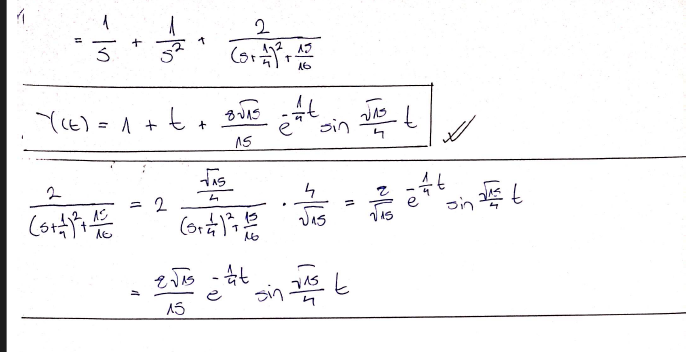 = 1/s + 1/s² + 2/((s+1/4)²+15/16)
Y(t) = 1 + t + 8√15/15 e^(-1/4 t) sin √15/4 t
2/((s+1/4)²+15/16) = 2 (√15/4)/((s+1/4)²+15/16) · 4/√15 = 8/√15 e^(-1/4 t) sin √15/4 t
= 8√15/15 e^(-1/4 t) sin √15/4 t